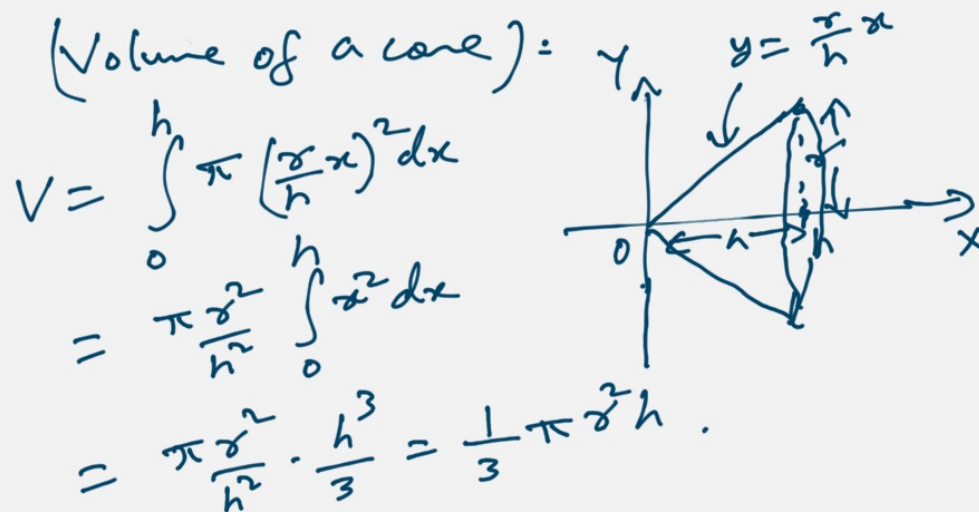 (Volume of a cone):
V = ∫₀ʰ π (r/h x)² dx
= π r²/h² ∫₀ʰ x² dx
= π r²/h² · h³/3 = 1/3 π r² h.
Y
y = r/h x
r
h
h
O
X